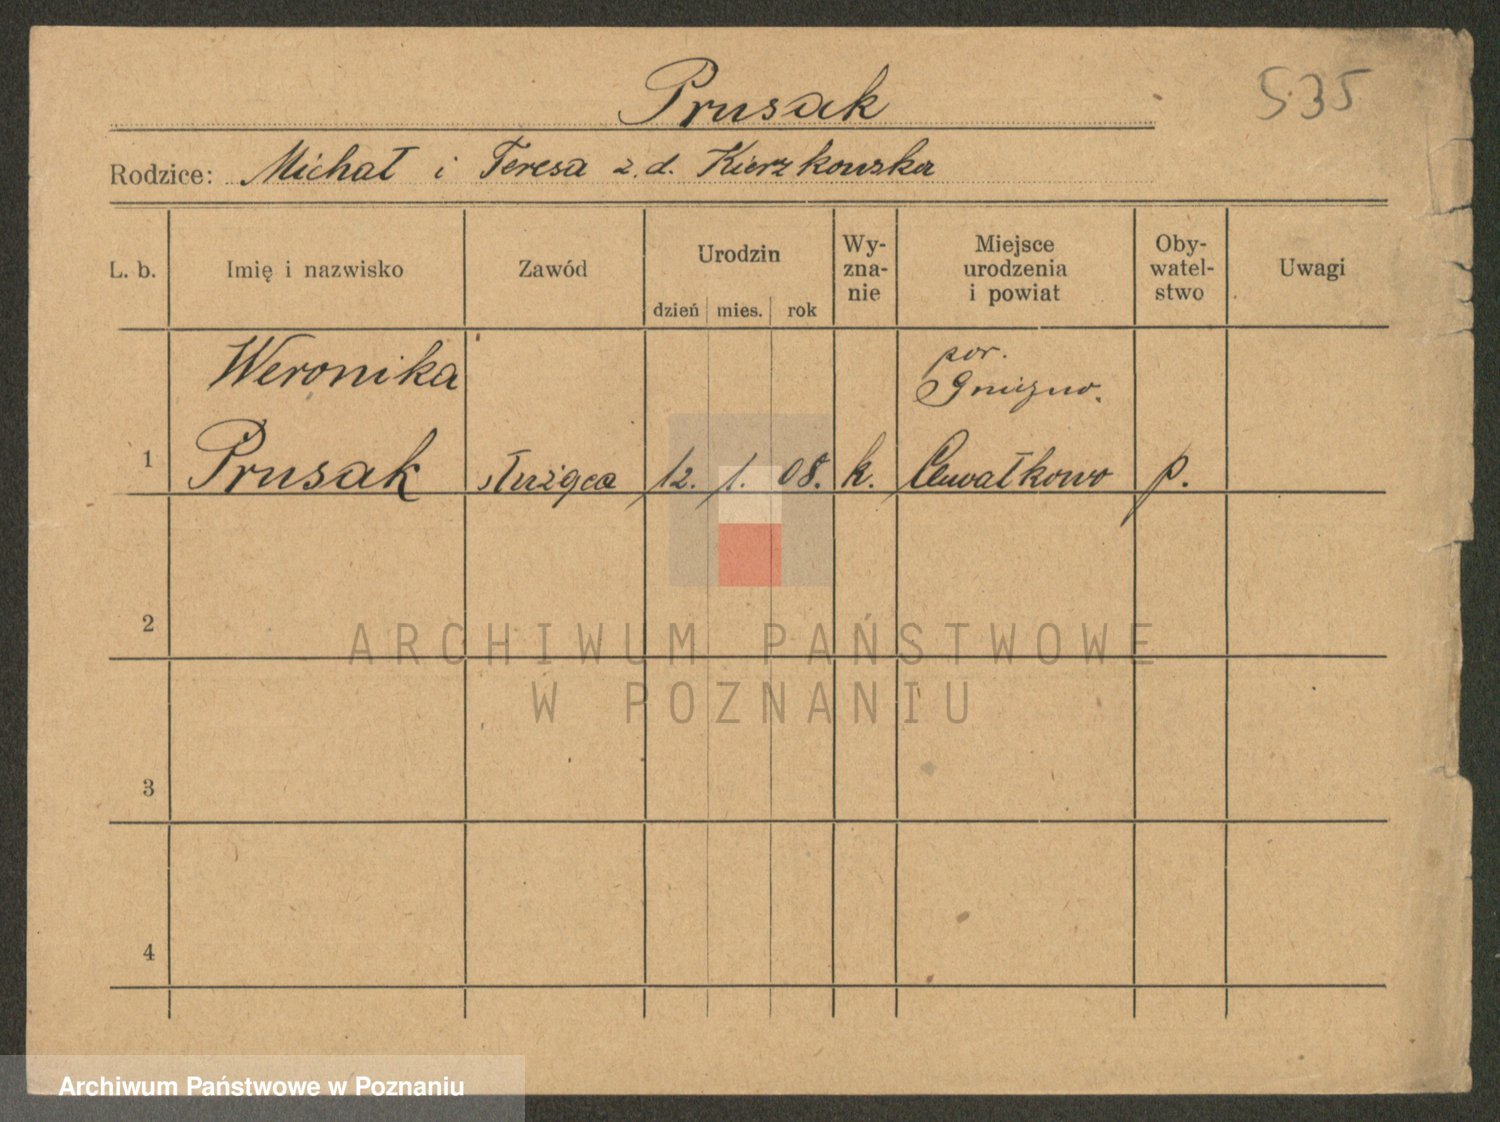 Prusak
535
Rodzice: Michał i Teresa z. d. Kierzkowska
L. b.
Imię i nazwisko
Zawód
Urodzin
dzień
mies.
rok
Wy-
zna-
nie
Miejsce
urodzenia
i powiat
Oby-
watel-
stwo
Uwagi
1
Weronika
Prusak
służąca
12. 1. 08.
k.
Gniezno.
p.
2
3
4
ARCHIWUM PAŃSTWOWE
W POZNANIU
Archiwum Państwowe w Poznaniu